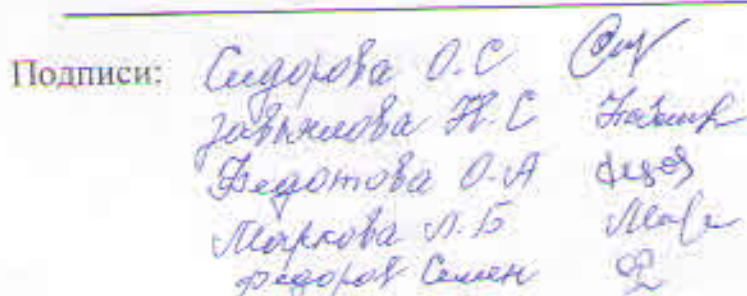 Подписи: Сидорова О.С
Завьялова Н.С
Федотова О.А
Маркова Л.Б
Федоров Семен